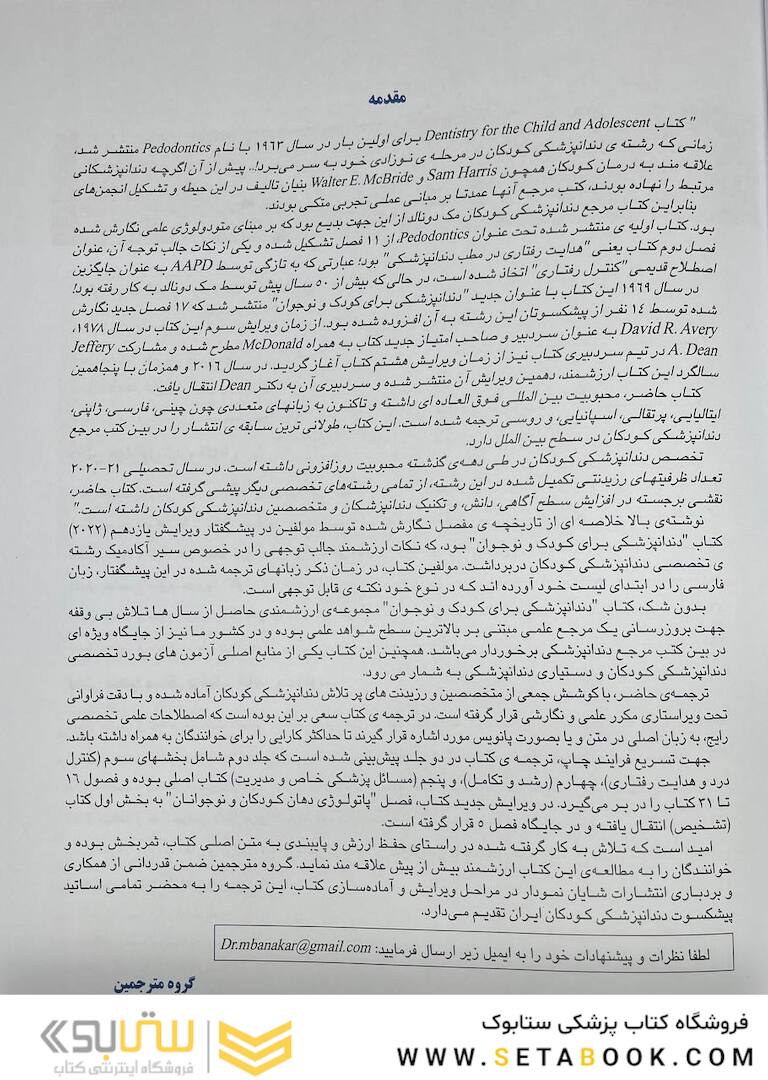 مقدمه
" کتاب Dentistry for the Child and Adolescent برای اولین بار در سال ۱۹۶۳ با نام Pedodontics منتشر شد،
زمانی که رشته ی دندانپزشکی کودکان در مرحله ی نوزادی خود به سر می‌برد!.. پیش از آن اگرچه دندانپزشکانی
علاقه مند به درمان کودکان همچون Sam Harris و Walter E. McBride بنیان تالیف در این حیطه و تشکیل انجمن‌های
مرتبط را نهاده بودند، کتب مرجع آنها عمدتا بر مبانی عملی تجربی متکی بودند.
بنابراین کتاب مرجع دندانپزشکی کودکان مک دونالد از این جهت بدیع بود که بر مبنای متودولوژی علمی نگارش شده
بود. کتاب اولیه ی منتشر شده تحت عنوان Pedodontics، از ۱۱ فصل تشکیل شده و یکی از نکات جالب توجه آن، عنوان
فصل دوم کتاب یعنی "هدایت رفتاری در مطب دندانپزشکی" بود؛ عبارتی که به تازگی توسط AAPD به عنوان جایگزین
اصطلاح قدیمی "کنترل رفتاری" اتخاذ شده است، در حالی که بیش از ۵۰ سال پیش توسط مک دونالد به کار رفته بود!
در سال ۱۹۶۹ این کتاب با عنوان جدید "دندانپزشکی برای کودک و نوجوان" منتشر شد که ۱۷ فصل جدید نگارش
شده توسط ۱۴ نفر از پیشکسوتان این رشته به آن افزوده شده بود. از زمان ویرایش سوم این کتاب در سال ۱۹۷۸،
David R. Avery به عنوان سردبیر و صاحب امتیاز جدید کتاب به همراه McDonald مطرح شده و مشارکت Jeffery
A. Dean در تیم سردبیری کتاب نیز از زمان ویرایش هشتم کتاب آغاز گردید. در سال ۲۰۱۶ و همزمان با پنجاهمین
سالگرد این کتاب ارزشمند، دهمین ویرایش آن منتشر شده و سردبیری آن به دکتر Dean انتقال یافت.
کتاب حاضر، محبوبیت بین المللی فوق العاده ای داشته و تاکنون به زبانهای متعددی چون چینی، فارسی، ژاپنی،
ایتالیایی، پرتقالی، اسپانیایی، و روسی ترجمه شده است. این کتاب، طولانی ترین سابقه ی انتشار را در بین کتب مرجع
دندانپزشکی کودکان در سطح بین الملل دارد.
تخصص دندانپزشکی کودکان در طی دهه‌ی گذشته محبوبیت روزافزونی داشته است. در سال تحصیلی ۲۱-۲۰۲۰
تعداد ظرفیتهای رزیدنتی تکمیل شده در این رشته، از تمامی رشته‌های تخصصی دیگر پیشی گرفته است. کتاب حاضر،
نقشی برجسته در افزایش سطح آگاهی، دانش، و تکنیک دندانپزشکان و متخصصین دندانپزشکی کودکان داشته است."
نوشته‌ی بالا خلاصه ای از تاریخچه ی مفصل نگارش شده توسط مولفین در پیشگفتار ویرایش یازدهم (۲۰۲۲)
کتاب "دندانپزشکی برای کودک و نوجوان" بود، که نکات ارزشمند جالب توجهی را در خصوص سیر آکادمیک رشته
ی تخصصی دندانپزشکی کودکان دربرداشت. مولفین کتاب، در زمان ذکر زبانهای ترجمه شده در این پیشگفتار، زبان
فارسی را در ابتدای لیست خود آورده اند که در نوع خود نکته ی قابل توجهی است.
بدون شک، کتاب "دندانپزشکی برای کودک و نوجوان" مجموعه‌ی ارزشمندی حاصل از سال ها تلاش بی وقفه
جهت بروزرسانی یک مرجع علمی مبتنی بر بالاترین سطح شواهد علمی بوده و در کشور ما نیز از جایگاه ویژه ای
در بین کتب مرجع دندانپزشکی برخوردار می‌باشد. همچنین این کتاب یکی از منابع اصلی آزمون های بورد تخصصی
دندانپزشکی کودکان و دستیاری دندانپزشکی به شمار می رود.
ترجمه‌ی حاضر، با کوشش جمعی از متخصصین و رزیدنت های پر تلاش دندانپزشکی کودکان آماده شده و با دقت فراوانی
تحت ویراستاری مکرر علمی و نگارشی قرار گرفته است. در ترجمه ی کتاب سعی بر این بوده است که اصطلاحات علمی تخصصی
رایج، به زبان اصلی در متن و یا بصورت پانویس مورد اشاره قرار گیرند تا حداکثر کارایی را برای خوانندگان به همراه داشته باشد.
جهت تسریع فرایند چاپ، ترجمه ی کتاب در دو جلد پیش‌بینی شده است که جلد دوم شامل بخشهای سوم (کنترل
درد و هدایت رفتاری)، چهارم (رشد و تکامل)، و پنجم (مسائل پزشکی خاص و مدیریت) کتاب اصلی بوده و فصول ۱۶
تا ۳۱ کتاب را در بر می‌گیرد. در ویرایش جدید کتاب، فصل "پاتولوژی دهان کودکان و نوجوانان" به بخش اول کتاب
(تشخیص) انتقال یافته و در جایگاه فصل ۵ قرار گرفته است.
امید است که تلاش به کار گرفته شده در راستای حفظ ارزش و پایبندی به متن اصلی کتاب، ثمربخش بوده و
خوانندگان را به مطالعه‌ی این کتاب ارزشمند بیش از پیش علاقه مند نماید. گروه مترجمین ضمن قدردانی از همکاری
و بردباری انتشارات شایان نمودار در مراحل ویرایش و آماده‌سازی کتاب، این ترجمه را به محضر تمامی اساتید
پیشکسوت دندانپزشکی کودکان ایران تقدیم می‌دارد.
لطفا نظرات و پیشنهادات خود را به ایمیل زیر ارسال فرمایید: Dr.mbanakar@gmail.com
گروه مترجمین
فروشگاه کتاب پزشکی ستابوک
WWW.SETABOOK.COM
ستابوک
فروشگاه اینترنتی کتاب